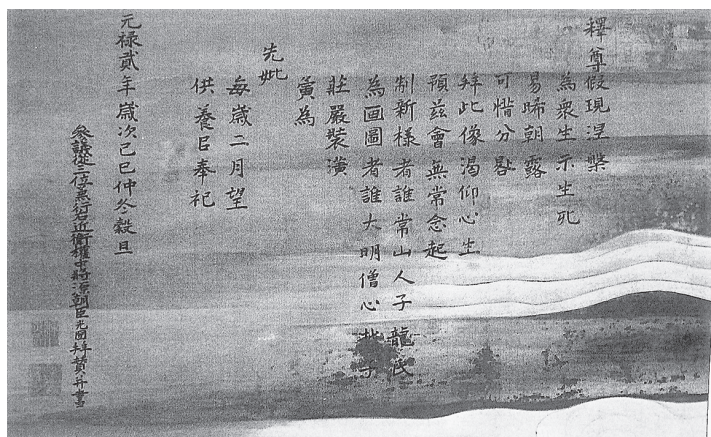 釋尊假現涅槃
為衆生示生死
易晞朝露
可惜分晷
拜此像渴仰心生
預茲會無常念起
制新樣者誰常山人子龍氏
為画圖者誰大明僧心越子
莊嚴裝潢
寅為
先妣
每歳二月望
供養目奉祀
元禄貳年歳次己巳仲冬穀旦
參議從三位兼行右近衛權中將源朝臣光圀拜賛并書